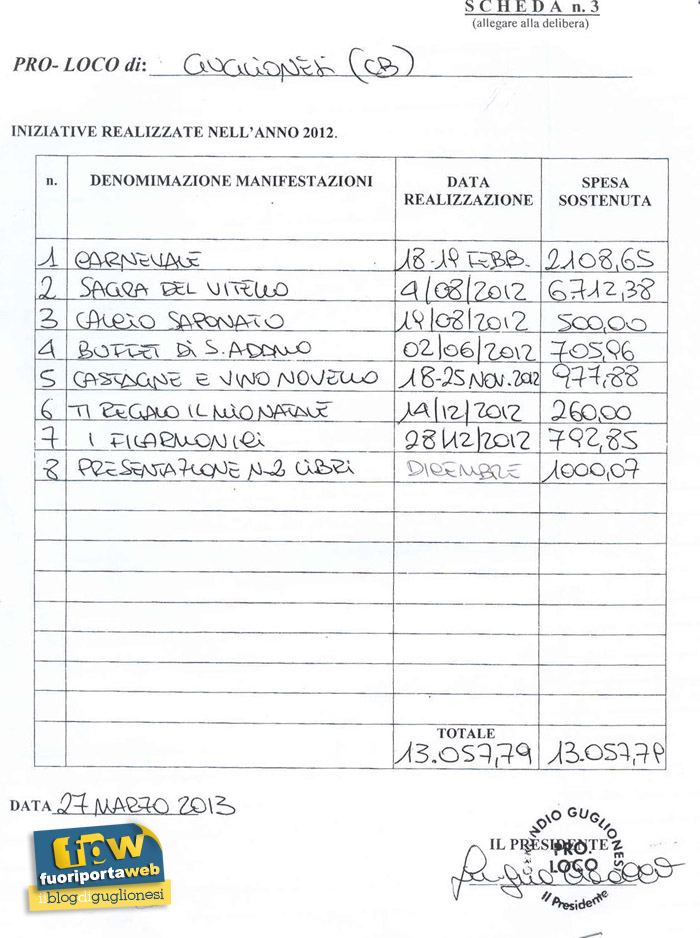 SCHEDA n. 3
(allegare alla delibera)
PRO- LOCO di: GUGLIONESI (CB)
INIZIATIVE REALIZZATE NELL'ANNO 2012.
n. DENOMIMAZIONE MANIFESTAZIONI DATA REALIZZAZIONE SPESA SOSTENUTA
1 CARNEVALE 18-19 FEBB. 2108,65
2 SAGRA DEL VITELLO 9/08/2012 6.712,38
3 CALCIO SAPONATO 19/08/2012 500,00
4 BUFFET DI S. ADAMO 02/06/2012 705,96
5 CASTAGNE E VINO NOVELLO 18-25 NOV. 2012 977,88
6 TI REGALO IL MIO NATALE 14/12/2012 260,00
7 I FILARMONICI 28/12/2012 792,85
8 PRESENTAZIONE N.2 LIBRI DICEMBRE 1000,07
TOTALE
13.057,79 13.057,79
DATA 27 MARZO 2013
IL PRESIDENTE
GUGLIONESI
PRO.
LOCO
Il Presidente
fpw
fuoriportaweb
il blog di guglionesi